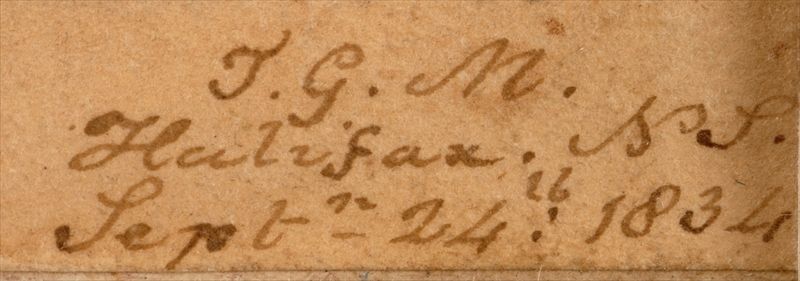 T. G. M.
Halifax. N S.
Septr 24th: 1834